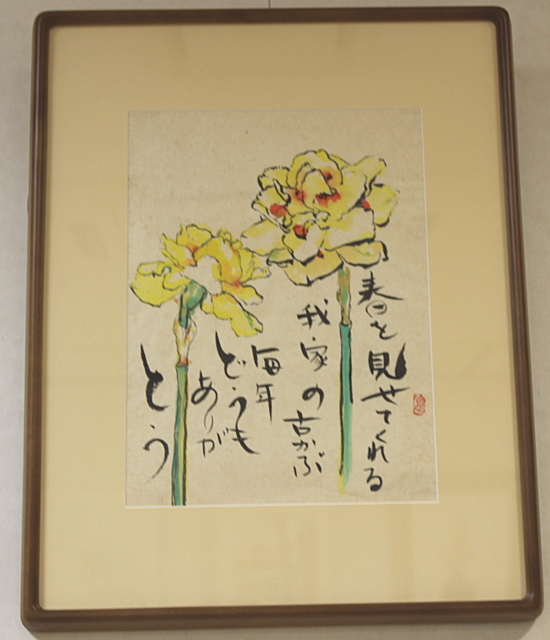 春を見せてくれる
我家の古かぶ
毎年
どうも
ありが
とう